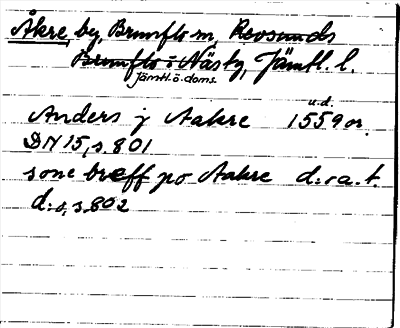 Åkre, by, Brunflo sn, Revsunds
Brunflo o Näs tg, Jämtl. l.
Jämtl. ö. doms.
u.d.
Anders j Aakre 1559 or.
DN 15, s. 801
sone breff po Aakre d:o a. t.
d:o, s. 802